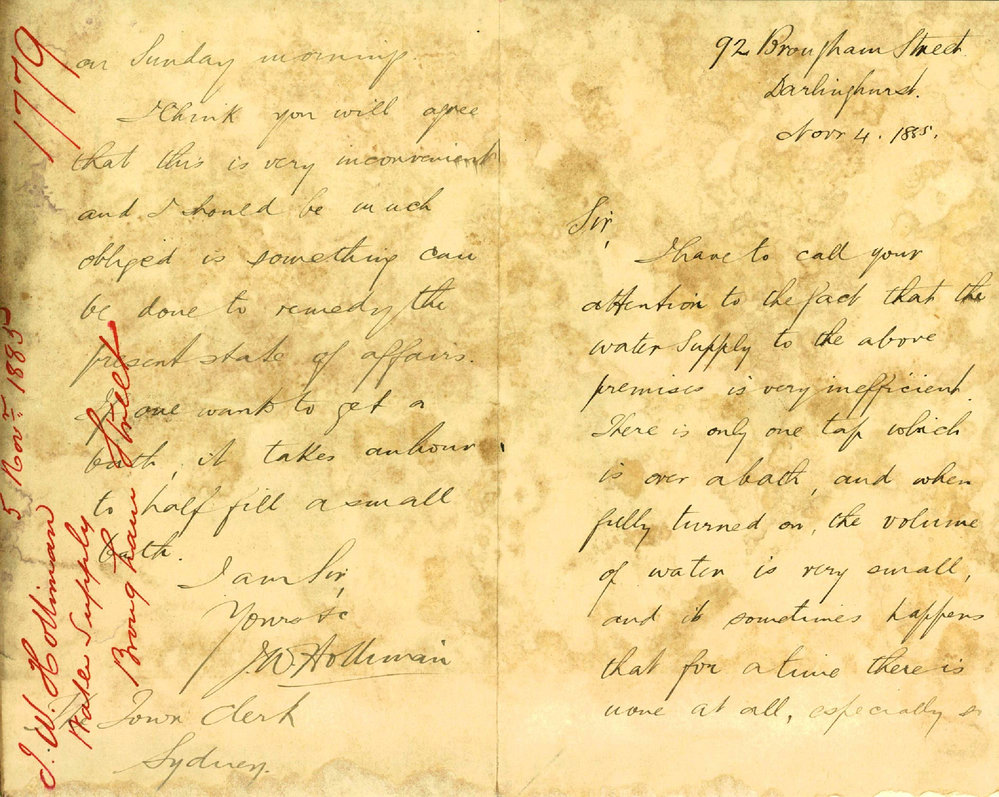 92 Brougham Street
Darlinghurst.
Novr 4. 1885.
Sir,
I have to call your
attention to the fact that the
water supply to the above
premises is very inefficient.
There is only one tap which
is over a bath, and when
fully turned on, the volume
of water is very small,
and it sometimes happens
that for a time there is
none at all, especially so
on Sunday morning.
I think you will agree
that this is very inconvenient
and I should be much
obliged is something can
be done to remedy the
present state of affairs.
If one wants to get a
bath, it takes an hour
to half fill a small
bath.
I am Sir,
Yours &c
J.W. Holliman
The Town Clerk
Sydney.
1779
5 Novr 1885
J. W. Holliman
Water Supply
Brougham Street